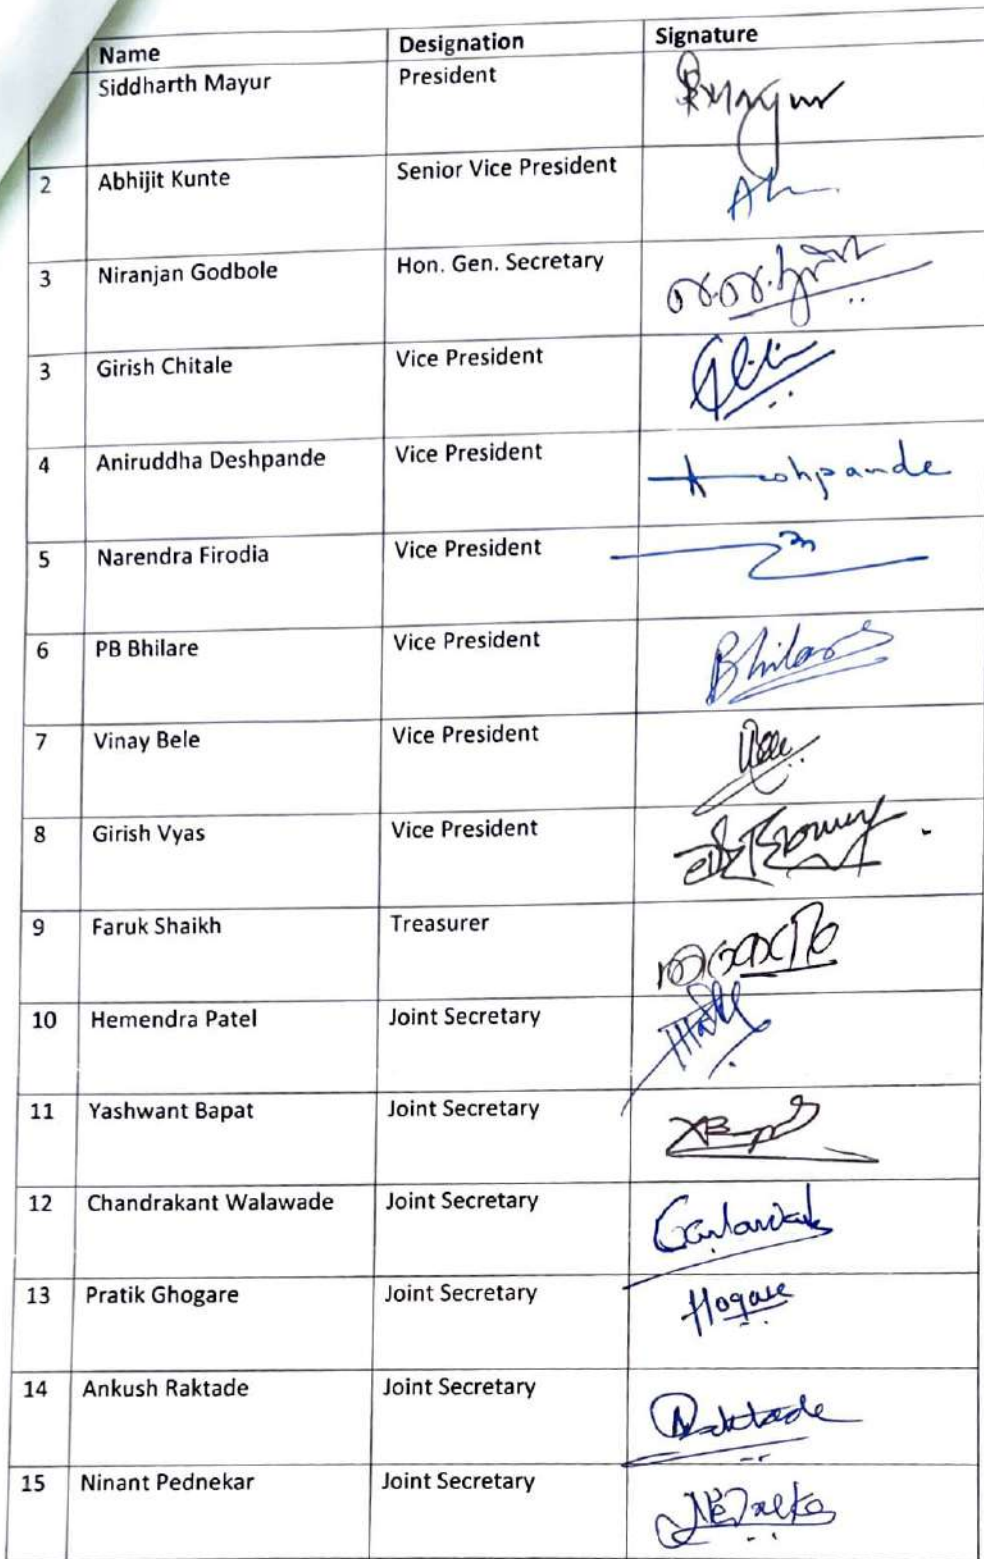 Name Designation Signature
Siddharth Mayur President
2 Abhijit Kunte Senior Vice President
3 Niranjan Godbole Hon. Gen. Secretary
3 Girish Chitale Vice President
4 Aniruddha Deshpande Vice President
5 Narendra Firodia Vice President
6 PB Bhilare Vice President
7 Vinay Bele Vice President
8 Girish Vyas Vice President
9 Faruk Shaikh Treasurer
10 Hemendra Patel Joint Secretary
11 Yashwant Bapat Joint Secretary
12 Chandrakant Walawade Joint Secretary
13 Pratik Ghogare Joint Secretary
14 Ankush Raktade Joint Secretary
15 Ninant Pednekar Joint Secretary